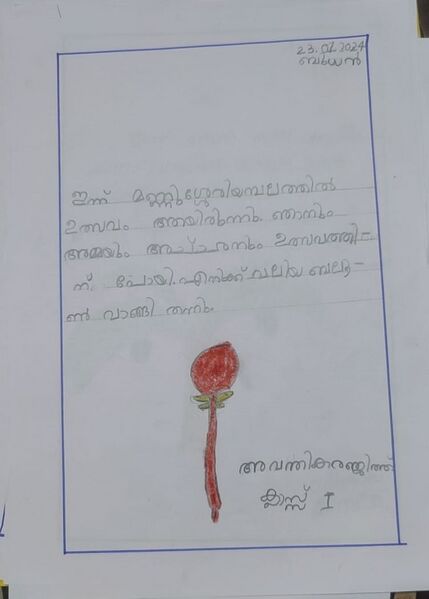 23.01.2024
ബുധൻ
ഇന്ന് മണ്ണുശ്ശേരിയമ്പലത്തിൽ
ഉത്സവം ആയിരുന്നു. ഞാനും
അമ്മയും അച്ചനും ഉത്സവത്തി-
ന് പോയി. എനിക്ക് വലിയ ബലൂ-
ൺ വാങ്ങി തന്നു.
അവന്തികരഞ്ജിത്ത്
ക്ലാസ്സ് I